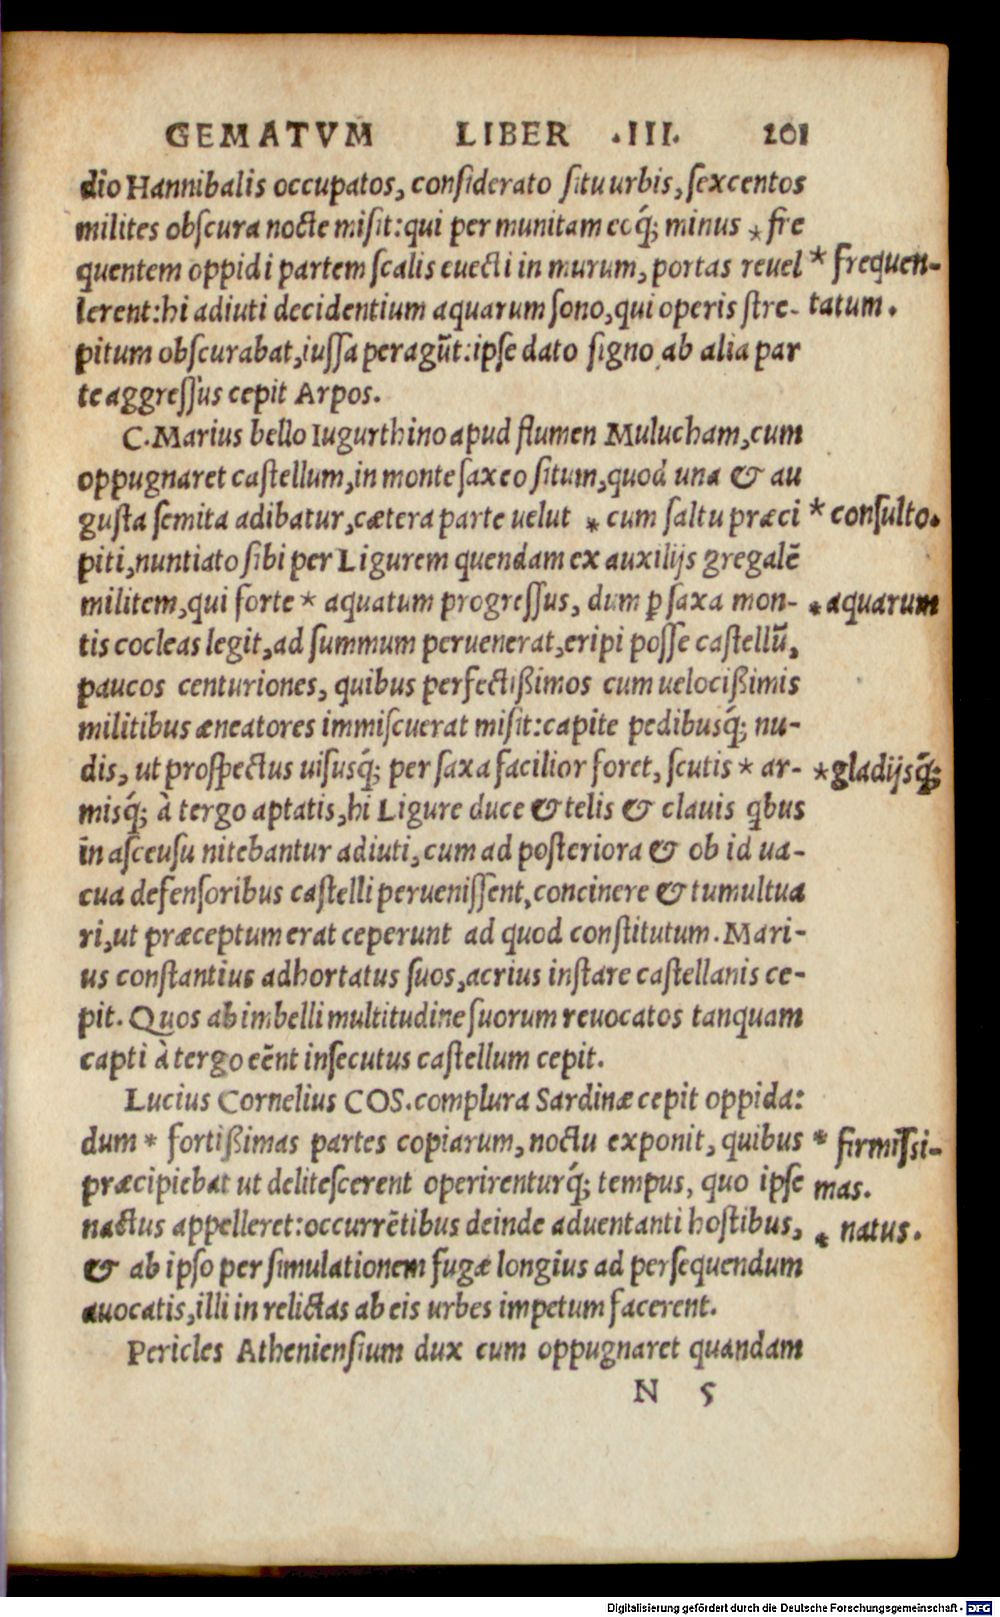 GEMATVM LIBER .III. 201
dio Hannibalis occupatos, considerato situ urbis, sexcentos
milites obscura nocte misit: qui per munitam eoq́; minus * fre
quentem oppidi partem scalis euecti in murum, portas reuel * frequen-
lerent: hi adiuti decidentium aquarum sono, qui operis stre- tatum.
pitum obscurabat, iussa peragũt: ipse dato signo ab alia par
te aggressus cepit Arpos.
C. Marius bello Iugurthino apud flumen Mulucham, cum
oppugnaret castellum, in monte saxeo situm, quod una & au
gusta semita adibatur, cætera parte uelut * cum saltu præci * consulto.
piti, nuntiato sibi per Ligurem quendam ex auxilijs gregalẽ
militem, qui forte * aquatum progressus, dum ꝑ saxa mon- * aquarum
tis cocleas legit, ad summum peruenerat, eripi posse castellũ,
paucos centuriones, quibus perfectißimos cum uelocißimis
militibus æneatores immiscuerat misit: capite pedibusq́; nu-
dis, ut prospectus uisusq́; per saxa facilior foret, scutis * ar- * gladijsq́;
misq́; à tergo aptatis, hi Ligure duce & telis & clauis qbus
in asceusu nitebantur adiuti, cum ad posteriora & ob id ua-
cua defensoribus castelli peruenissent, concinere & tumultua
ri, ut præceptum erat ceperunt ad quod constitutum. Mari-
us constantius adhortatus suos, acrius instare castellanis ce-
pit. Quos ab imbelli multitudine suorum reuocatos tanquam
capti à tergo eẽnt insecutus castellum cepit.
Lucius Cornelius COS. complura Sardinæ cepit oppida:
dum * fortißimas partes copiarum, noctu exponit, quibus * firmissi-
præcipiebat ut delitescerent operirenturq́; tempus, quo ipse mas.
nactus appelleret: occurrẽtibus deinde aduentanti hostibus, * natus.
& ab ipso per simulationem fugæ longius ad persequendum
auocatis, illi in relictas ab eis urbes impetum facerent.
Pericles Atheniensium dux cum oppugnaret quandam
N 5
Digitalisierung gefördert durch die Deutsche Forschungsgemeinschaft - DFG